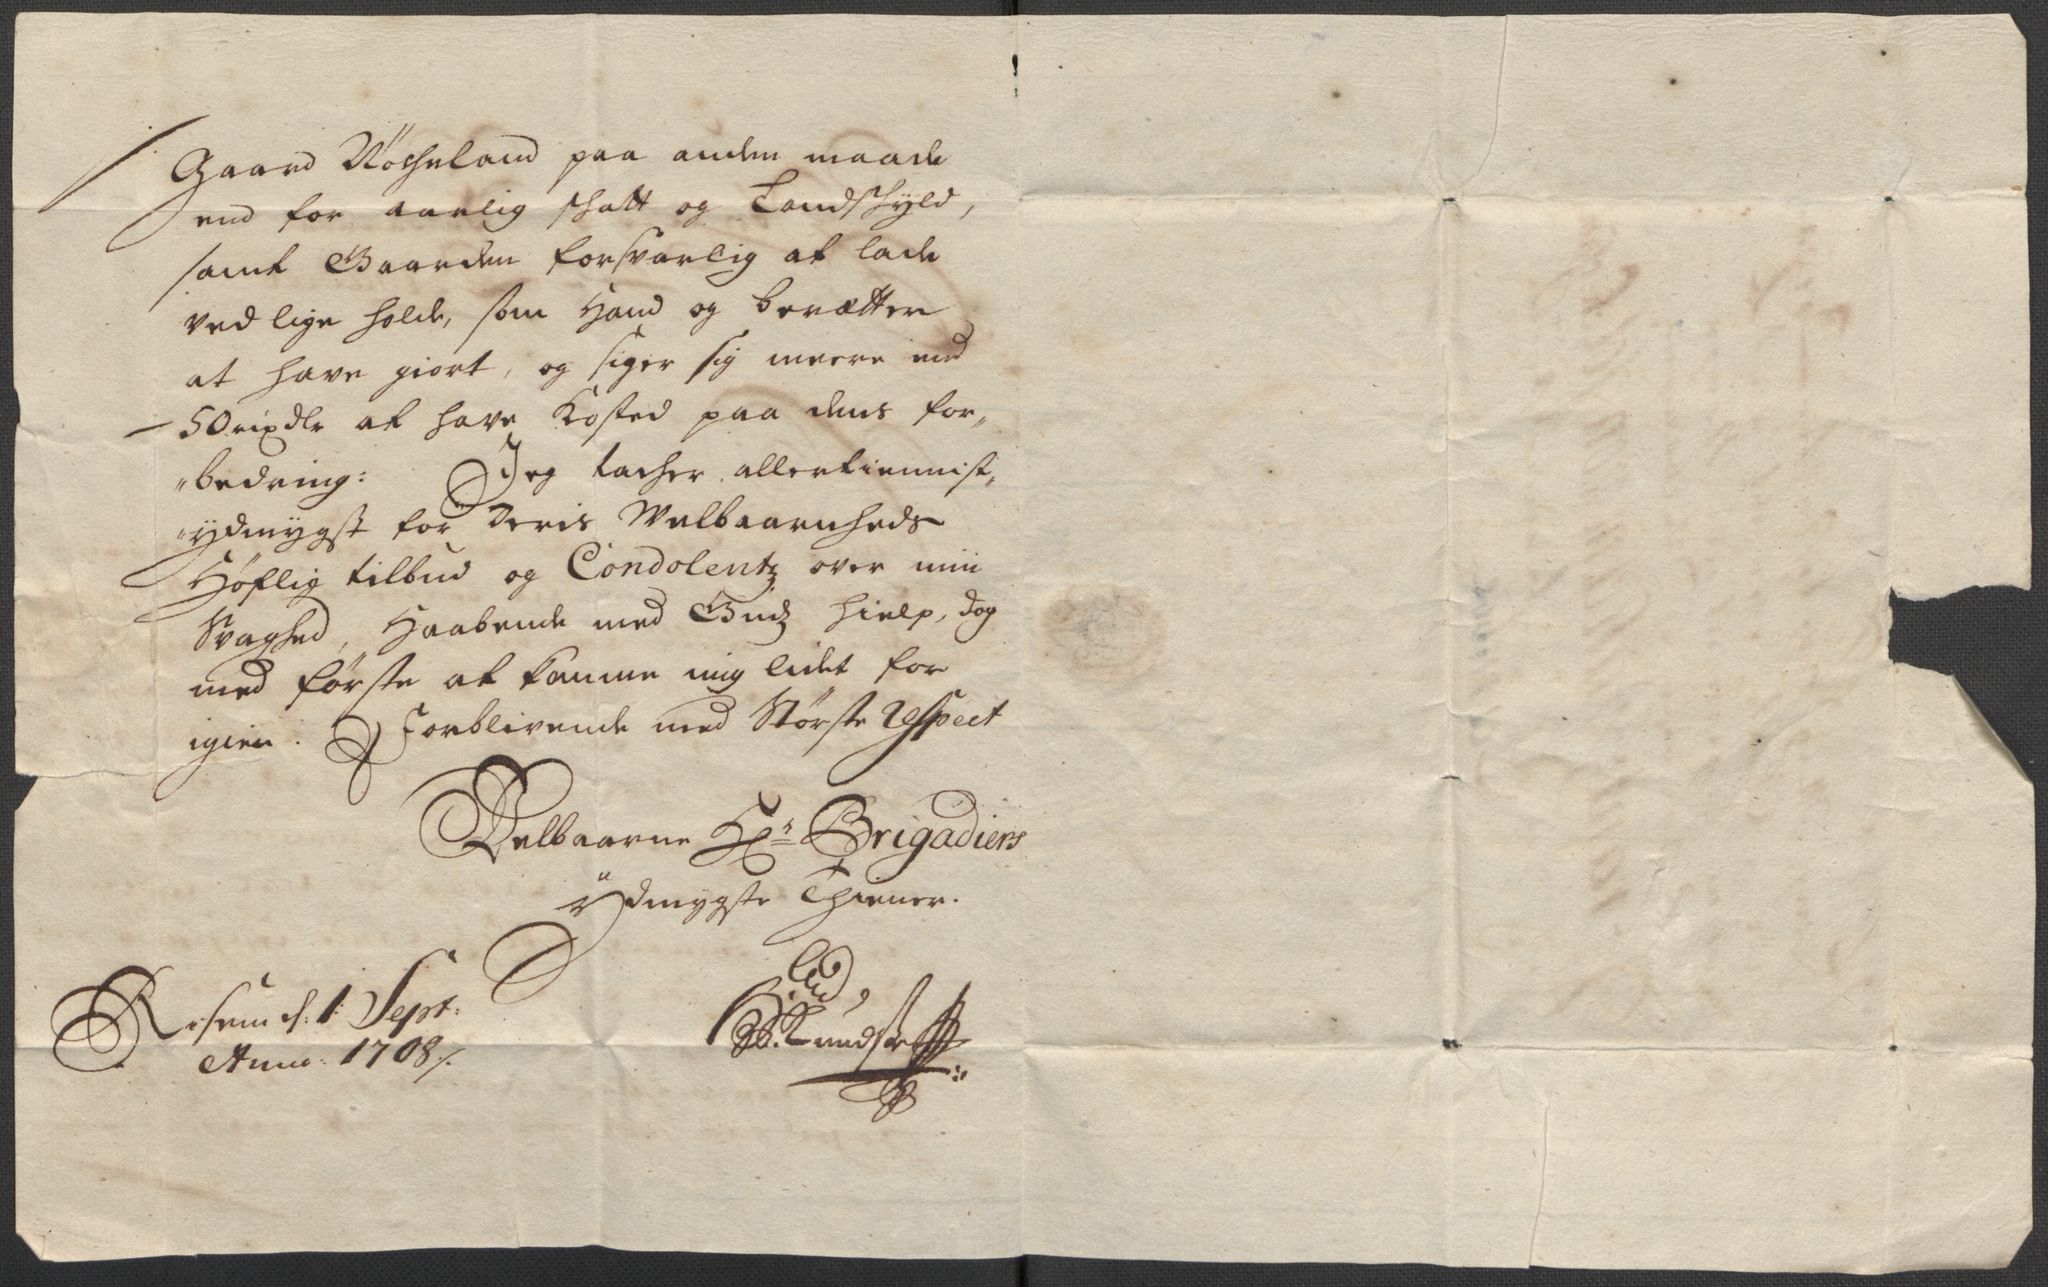 Gaard Röcheland paa anden maade
end for aarlig schatt og Landschyld,
samt Gaarden forsvarlig at lade
ved lige holde, som Hand og berætter
at have giort, og siger sig meere end
50 rixdlr at have Kosted paa dens for„
„bedring: Jeg tacher allertiennist„
„ydmygst for Deris Welbaarnheds
Höflig tilbud og Condolentz over min
Svaghed, Haabende med Gudz hielp, dog
med förste at komme mig lidet for
igien. Forblivende med Störste respect
Velbaarne Hr. Brigadiers
ÿdmygste Thiener.
d: 1 Sept:
Anno: 1708/.